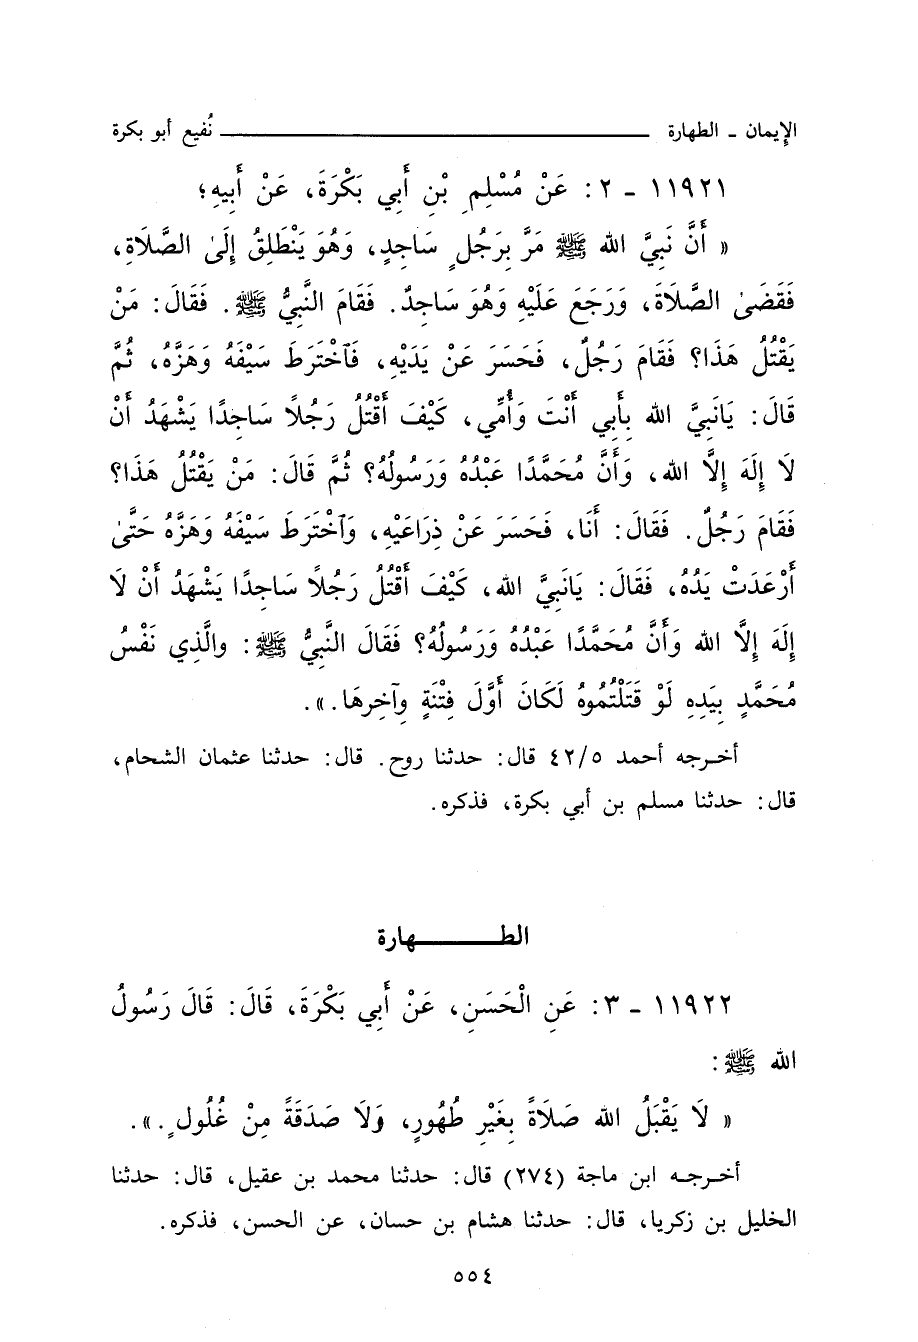 الإيمان ـ الطهارة ــــــــــــــــــــ نُفيع أبو بكرة
١١٩٢١ ـ ٢ : عَنْ مُسْلِمِ بْنِ أَبِي بَكْرَةَ، عَنْ أَبِيهِ؛
« أَنَّ نَبِيَّ الله ﷺ مَرَّ بِرَجُلٍ سَاجِدٍ، وَهُوَ يَنْطَلِقُ إِلَىٰ الصَّلَاةِ،
فَقَضَىٰ الصَّلَاةَ، وَرَجَعَ عَلَيْهِ وَهُوَ سَاجِدٌ. فَقَامَ النَّبِيُّ ﷺ. فَقَالَ: مَنْ
يَقْتُلُ هَذَا؟ فَقَامَ رَجُلٌ، فَحَسَرَ عَنْ يَدَيْهِ، فَٱخْتَرَطَ سَيْفَهُ وَهَزَّهُ، ثُمَّ
قَالَ: يَانَبِيَّ الله بِأَبِي أَنْتَ وَأُمِّي، كَيْفَ أَقْتُلُ رَجُلًا سَاجِدًا يَشْهَدُ أَنْ
لَا إِلَهَ إِلَّا الله، وَأَنَّ مُحَمَّدًا عَبْدُهُ وَرَسُولُهُ؟ ثُمَّ قَالَ: مَنْ يَقْتُلُ هَذَا؟
فَقَامَ رَجُلٌ. فَقَالَ: أَنَا، فَحَسَرَ عَنْ ذِرَاعَيْهِ، وَٱخْتَرَطَ سَيْفَهُ وَهَزَّهُ حَتَّىٰ
أَرْعَدَتْ يَدُهُ، فَقَالَ: يَانَبِيَّ الله، كَيْفَ أَقْتُلُ رَجُلًا سَاجِدًا يَشْهَدُ أَنْ لَا
إِلَهَ إِلَّا الله وَأَنَّ مُحَمَّدًا عَبْدُهُ وَرَسُولُهُ؟ فَقَالَ النَّبِيُّ ﷺ: والَّذِي نَفْسُ
مُحَمَّدٍ بِيَدِهِ لَوْ قَتَلْتُمُوهُ لَكَانَ أَوَّلَ فِتْنَةٍ وآخِرهَا.».
أخرجه أحمد ٤٢/٥ قال: حدثنا روح. قال: حدثنا عثمان الشحام،
قال: حدثنا مسلم بن أبي بكرة، فذكره.
الطـــــــهارة
١١٩٢٢ ـ ٣: عَنِ الْحَسَنِ، عَنْ أَبِي بَكْرَةَ، قَالَ: قَالَ رَسُولُ
الله ﷺ:
« لَا يَقْبَلُ الله صَلَاةً بِغَيْرِ طُهُورٍ، وَلَا صَدَقَةً مِنْ غُلُولٍ.».
أخرجه ابن ماجة (٢٧٤) قال: حدثنا محمد بن عقيل، قال: حدثنا
الخليل بن زكريا، قال: حدثنا هشام بن حسان، عن الحسن، فذكره.
٥٥٤